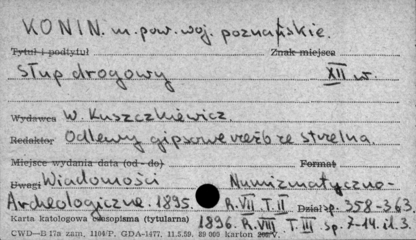 KONIN. m. pow. woj. poznańskie.
Tytuł i podtytuł Znak miejsca
Słup drogowy XII w.
Wydawca W. Kuszczkiewicz.
Redaktor Odlewy gipsowe rzeźb ze Strzelna.
Miejsce wydania data (od - do) Format
Uwagi Wiadomości Numizmatyczno-
Archeologiczne. 1895. R. VII T. II Dział sp. 358-363.
Karta katologowa czasopisma (tytularna) 1896. R. VIII T. III sp. 7-14. il. 3.
CWD—B 17a zam. 1104/P. GDA-1477. 11.5.59. 29 000 karton